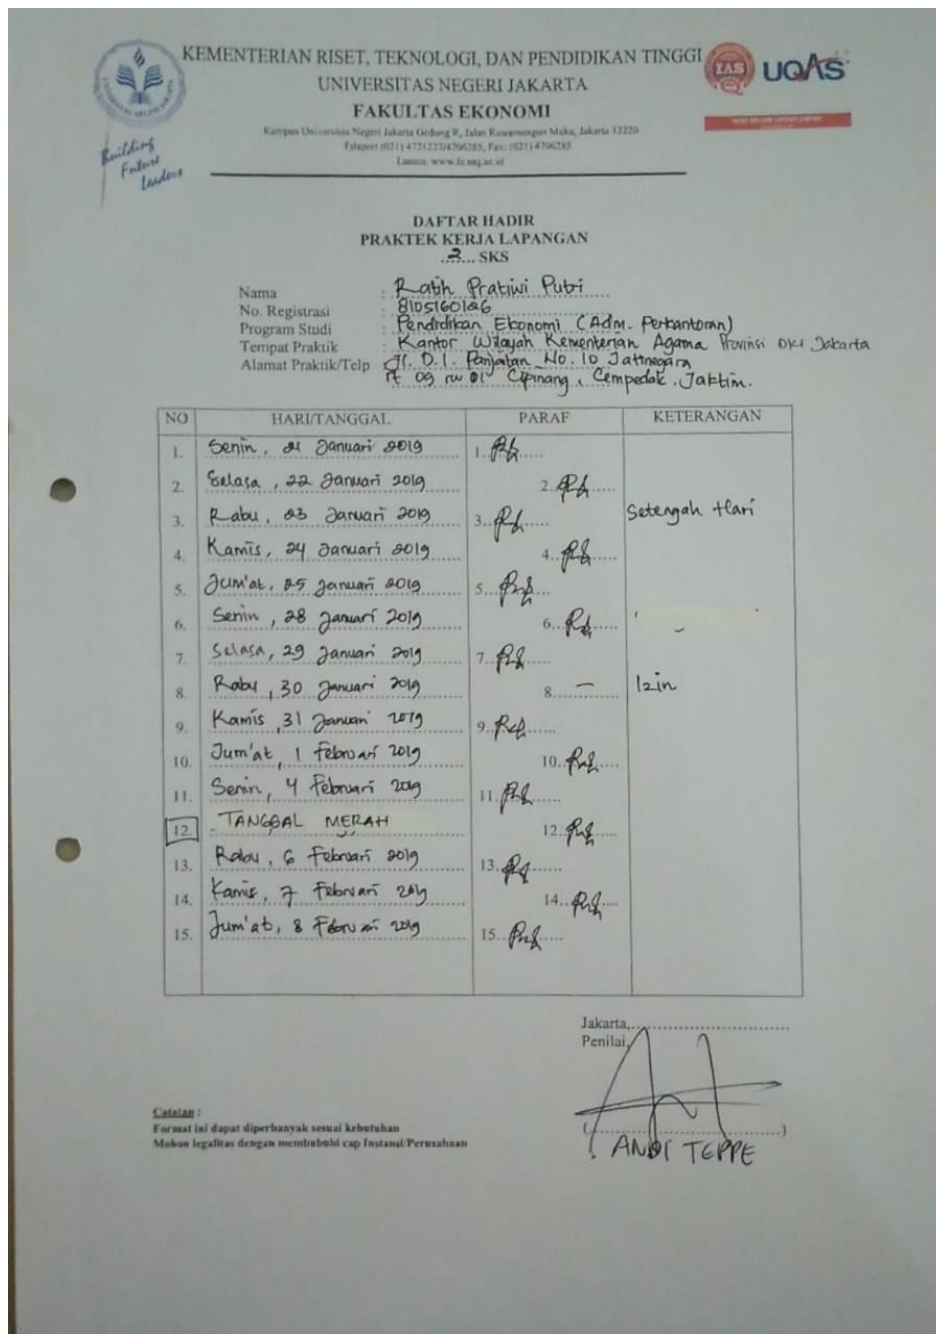 KEMENTERIAN RISET, TEKNOLOGI, DAN PENDIDIKAN TINGGI
UNIVERSITAS NEGERI JAKARTA
FAKULTAS EKONOMI
Kampus Universitas Negeri Jakarta Gedung R, Jalan Rawamangun Muka, Jakarta 13220
Telepon (021) 4721227/4706285, Fax: (021) 4706285
Laman: www.fe.unj.ac.id
IAS UQAS
Building
Future
Leaders
DAFTAR HADIR
PRAKTEK KERJA LAPANGAN
..2... SKS
Nama : Ratih Pratiwi Putri
No. Registrasi : 8105160126
Program Studi : Pendidikan Ekonomi (Adm. Perkantoran)
Tempat Praktik : Kantor Wilayah Kementerian Agama Provinsi DKI Jakarta
Alamat Praktik/Telp : Jl. D.I. Panjaitan No. 10 Jatinegara
rt 09 rw 01 Cipinang, Cempedak. Jaktim.
NO HARI/TANGGAL PARAF KETERANGAN
1. Senin, 21 Januari 2019 1.
2. Selasa, 22 Januari 2019 2.
3. Rabu, 23 Januari 2019 3. Setengah Hari
4. Kamis, 24 Januari 2019 4.
5. Jum'at, 25 Januari 2019 5.
6. Senin, 28 Januari 2019 6.
7. Selasa, 29 Januari 2019 7.
8. Rabu, 30 Januari 2019 8. – Izin
9. Kamis, 31 Januari 2019 9.
10. Jum'at, 1 Februari 2019 10.
11. Senin, 4 Februari 2019 11.
12. TANGGAL MERAH 12.
13. Rabu, 6 Februari 2019 13.
14. Kamis, 7 Februari 2019 14.
15. Jum'at, 8 Februari 2019 15.
Jakarta,
Penilai,
(....................)
ANDI TEPPE
Catatan :
Format ini dapat diperbanyak sesuai kebutuhan
Mohon legalitas dengan membubuhi cap Instansi/Perusahaan